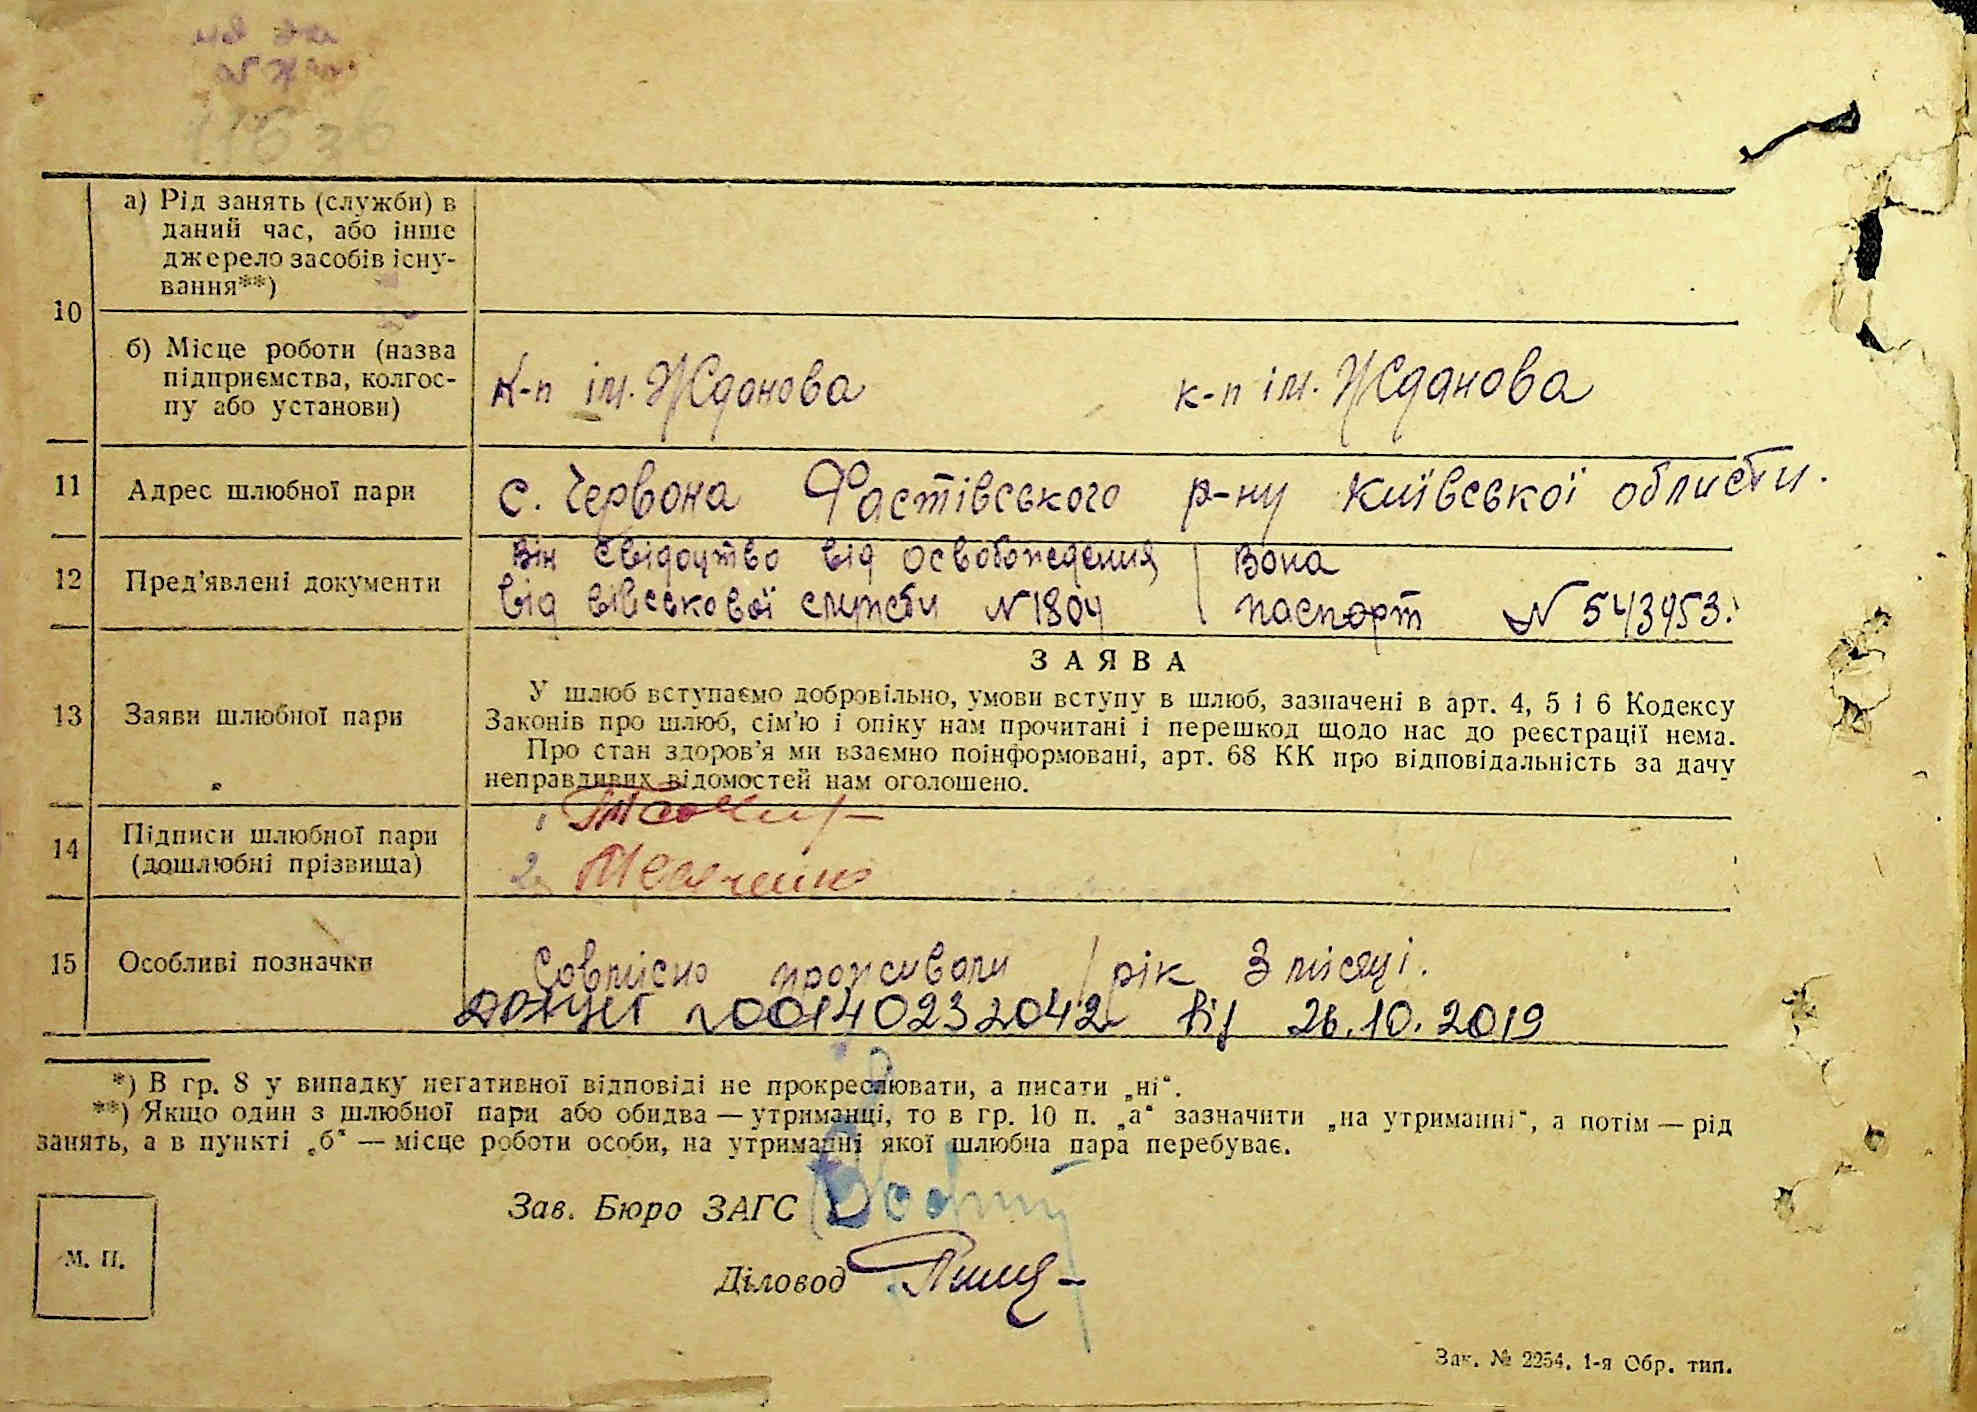 а) Рід занять (служби) в
даний час, або інше
джерело засобів існу-
вання**)
10
б) Місце роботи (назва
підприємства, колгос-
пу або установи)
К-п ім. Жданова к-п ім. Жданова
11 Адрес шлюбної пари с. Червона Фастівського р-ну Київської области.
12 Пред'явлені документи
Він свідоцтво від освобождения Вона
від військової служби №1804 паспорт № 543953.
ЗАЯВА
13 Заяви шлюбної пари
У шлюб вступаємо добровільно, умови вступу в шлюб, зазначені в арт. 4, 5 і 6 Кодексу
Законів про шлюб, сім'ю і опіку нам прочитані і перешкод щодо нас до реєстрації нема.
Про стан здоров'я ми взаємно поінформовані, арт. 68 КК про відповідальність за дачу
неправдивих відомостей нам оголошено.
14 Підписи шлюбної пари
(дошлюбні прізвища)
1
2
15 Особливі позначки
Совмісно проживали 1 рік 3 місяці.
№00140232042 від 26.10.2019
*) В гр. 8 у випадку негативної відповіді не прокреслювати, а писати „ні“.
**) Якщо один з шлюбної пари або обидва — утриманці, то в гр. 10 п. „а“ зазначити „на утриманні“, а потім — рід
занять, а в пункті „б“ — місце роботи особи, на утриманні якої шлюбна пара перебуває.
Зав. Бюро ЗАГС
Діловод
М. П.
Зак. № 2254. 1-я Обр. тип.